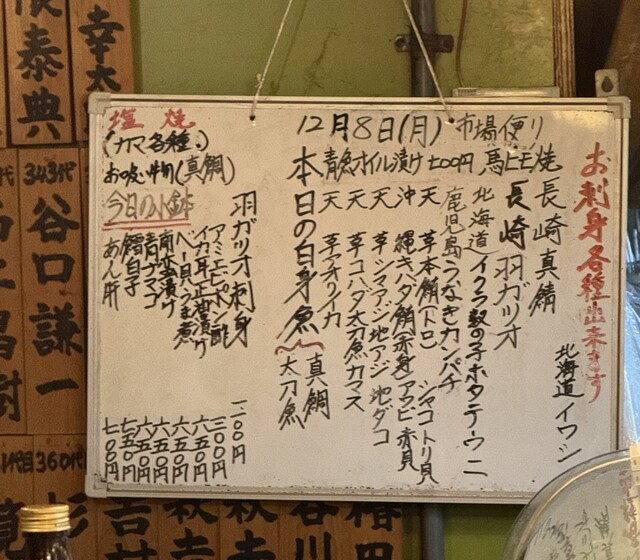 12月8日(月) 市場便り
青魚オイル漬け七00円 馬ヒモ焼
お刺身各種出来ます
北海道 イワシ
長崎真鯖
長崎羽ガツオ
北海道 イクラ 数の子 ホタテ・ウニ
鹿児島 うなぎ カンパチ
天草 本鮪(トロ) シャコ トリ貝
沖縄 キハダ鮪(赤身) アワビ 赤貝
天草 シマアジ 地アジ 地ダコ
天草 コハダ 太刀魚 カマス
天草 アオリイカ
本日の白身魚
真鯛
太刀魚
塩焼
(カマ各種。)
お吸い物(真鯛)
今日の小鉢
羽ガツオ刺身 一、一00円
アミエビポン酢 三00円
イカ耳 六五0円
ベー貝うま煮 六五0円
青ナマゴ 六五0円
鱈白子 七五0円
あん肝 七00円
泰典
幸
343代
谷口謙一
360代